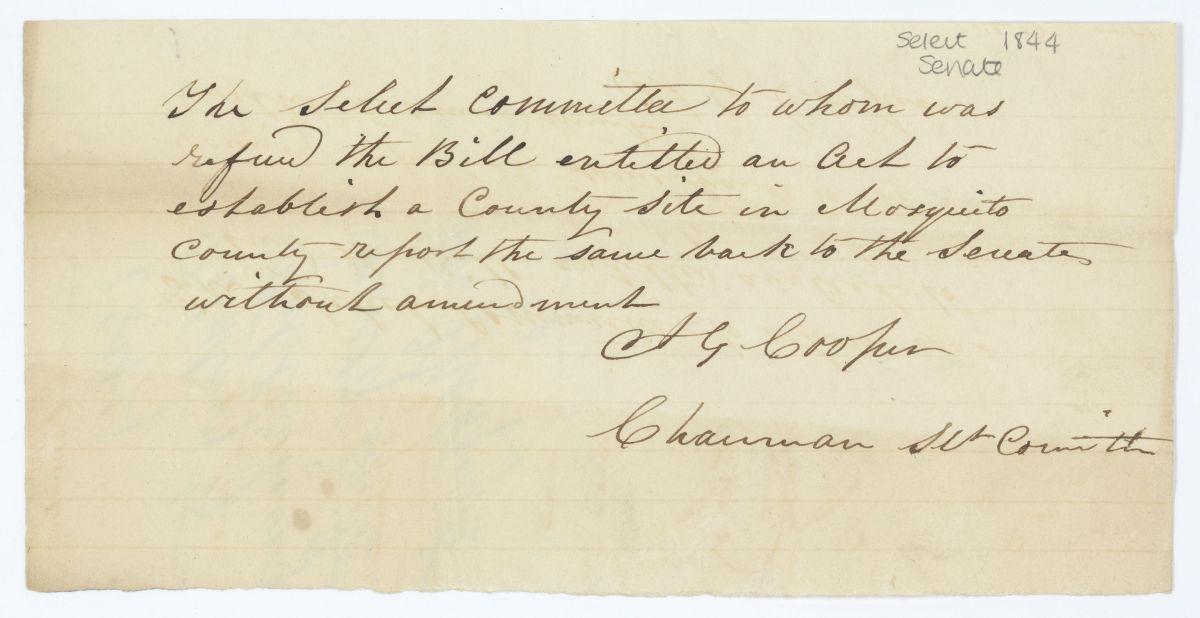 Select 1844
Senate
The Select Committee to whom was
refered the Bill entitled an Act to
establish a County Site in Mosquito
County report the same back to the Senate
without amendment
A G Cooper
Chairman Slt Committee